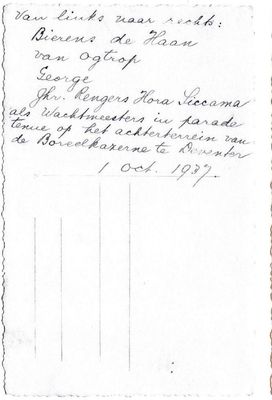 Van links naar rechts:
Bierens de Haan
van Ogtrop
George
Jhr. Rengers Hora Siccama
als Wachtmeesters in parade
tenue op het achterterrein van
de Boreelkazerne te Deventer
1 Oct. 1937